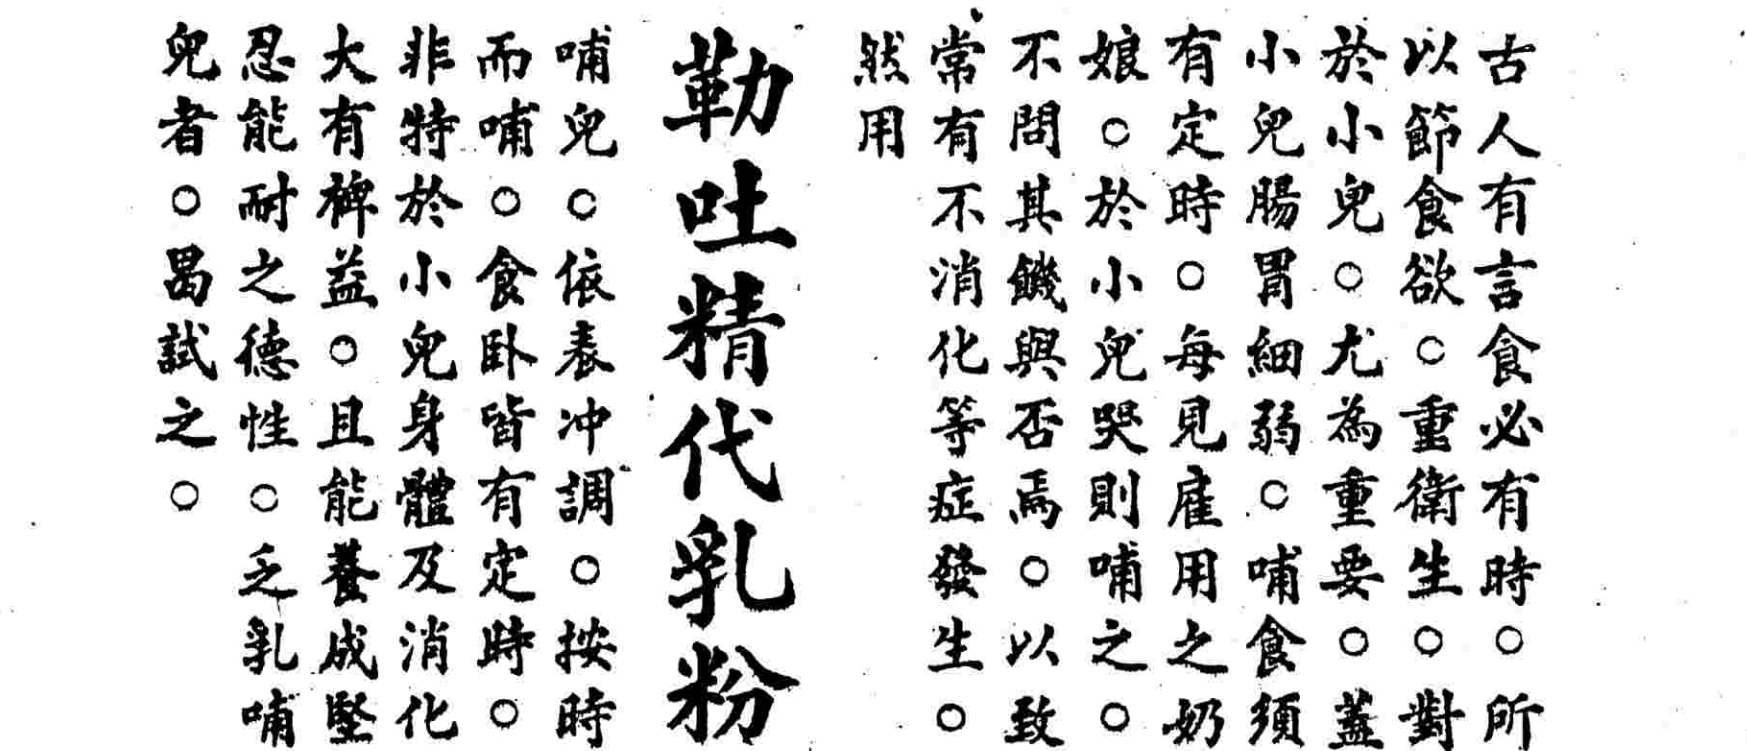 古人有言食必有時。所
以節食欲。重衛生。對
於小兒。尤為重要。蓋
小兒腸胃細弱。哺食須
有定時。每見雇用之奶
娘。於小兒哭則哺之。
不問其饑與否焉。以致
常有不消化等症發生。
然用
勒吐精代乳粉
哺兒。依表冲調。按時
而哺。食卧皆有定時。
非特於小兒身體及消化
大有裨益。且能養成堅
忍能耐之德性。乏乳哺
兒者。曷試之。